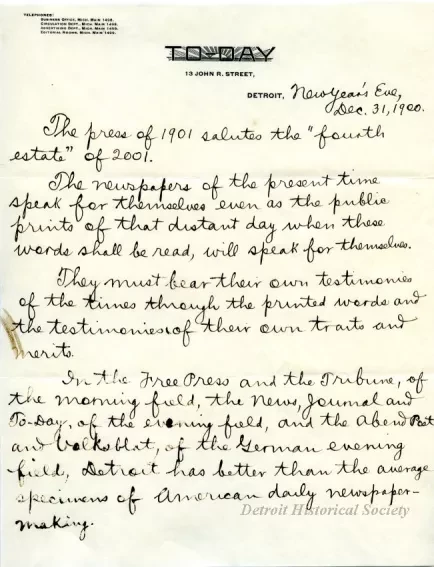 TELEPHONES:
BUSINESS OFFICE, MICH. MAIN 1498.
CIRCULATION DEPT., MICH. MAIN 1499.
ADVERTISING DEPT., MICH. MAIN 1498.
EDITORIAL ROOMS, MICH. MAIN 1499.
TO-DAY
13 JOHN R. STREET,
DETROIT, New Year's Eve,
Dec. 31, 1900.
The press of 1901 salutes the "fourth
estate" of 2001.
The newspapers of the present time
speak for themselves even as the public
prints of that distant day when these
words shall be read, will speak for themselves.
They must bear their own testimonies
of the times through the printed words and
the testimonies of their own traits and
merits.
In the Free Press and the Tribune, of
the morning field, the News, Journal and
To-Day, of the evening field, and the Abend Post
and Volksblat, of the German evening
field, Detroit has better than the average
specimens of American daily newspaper-
making.
Detroit Historical Society